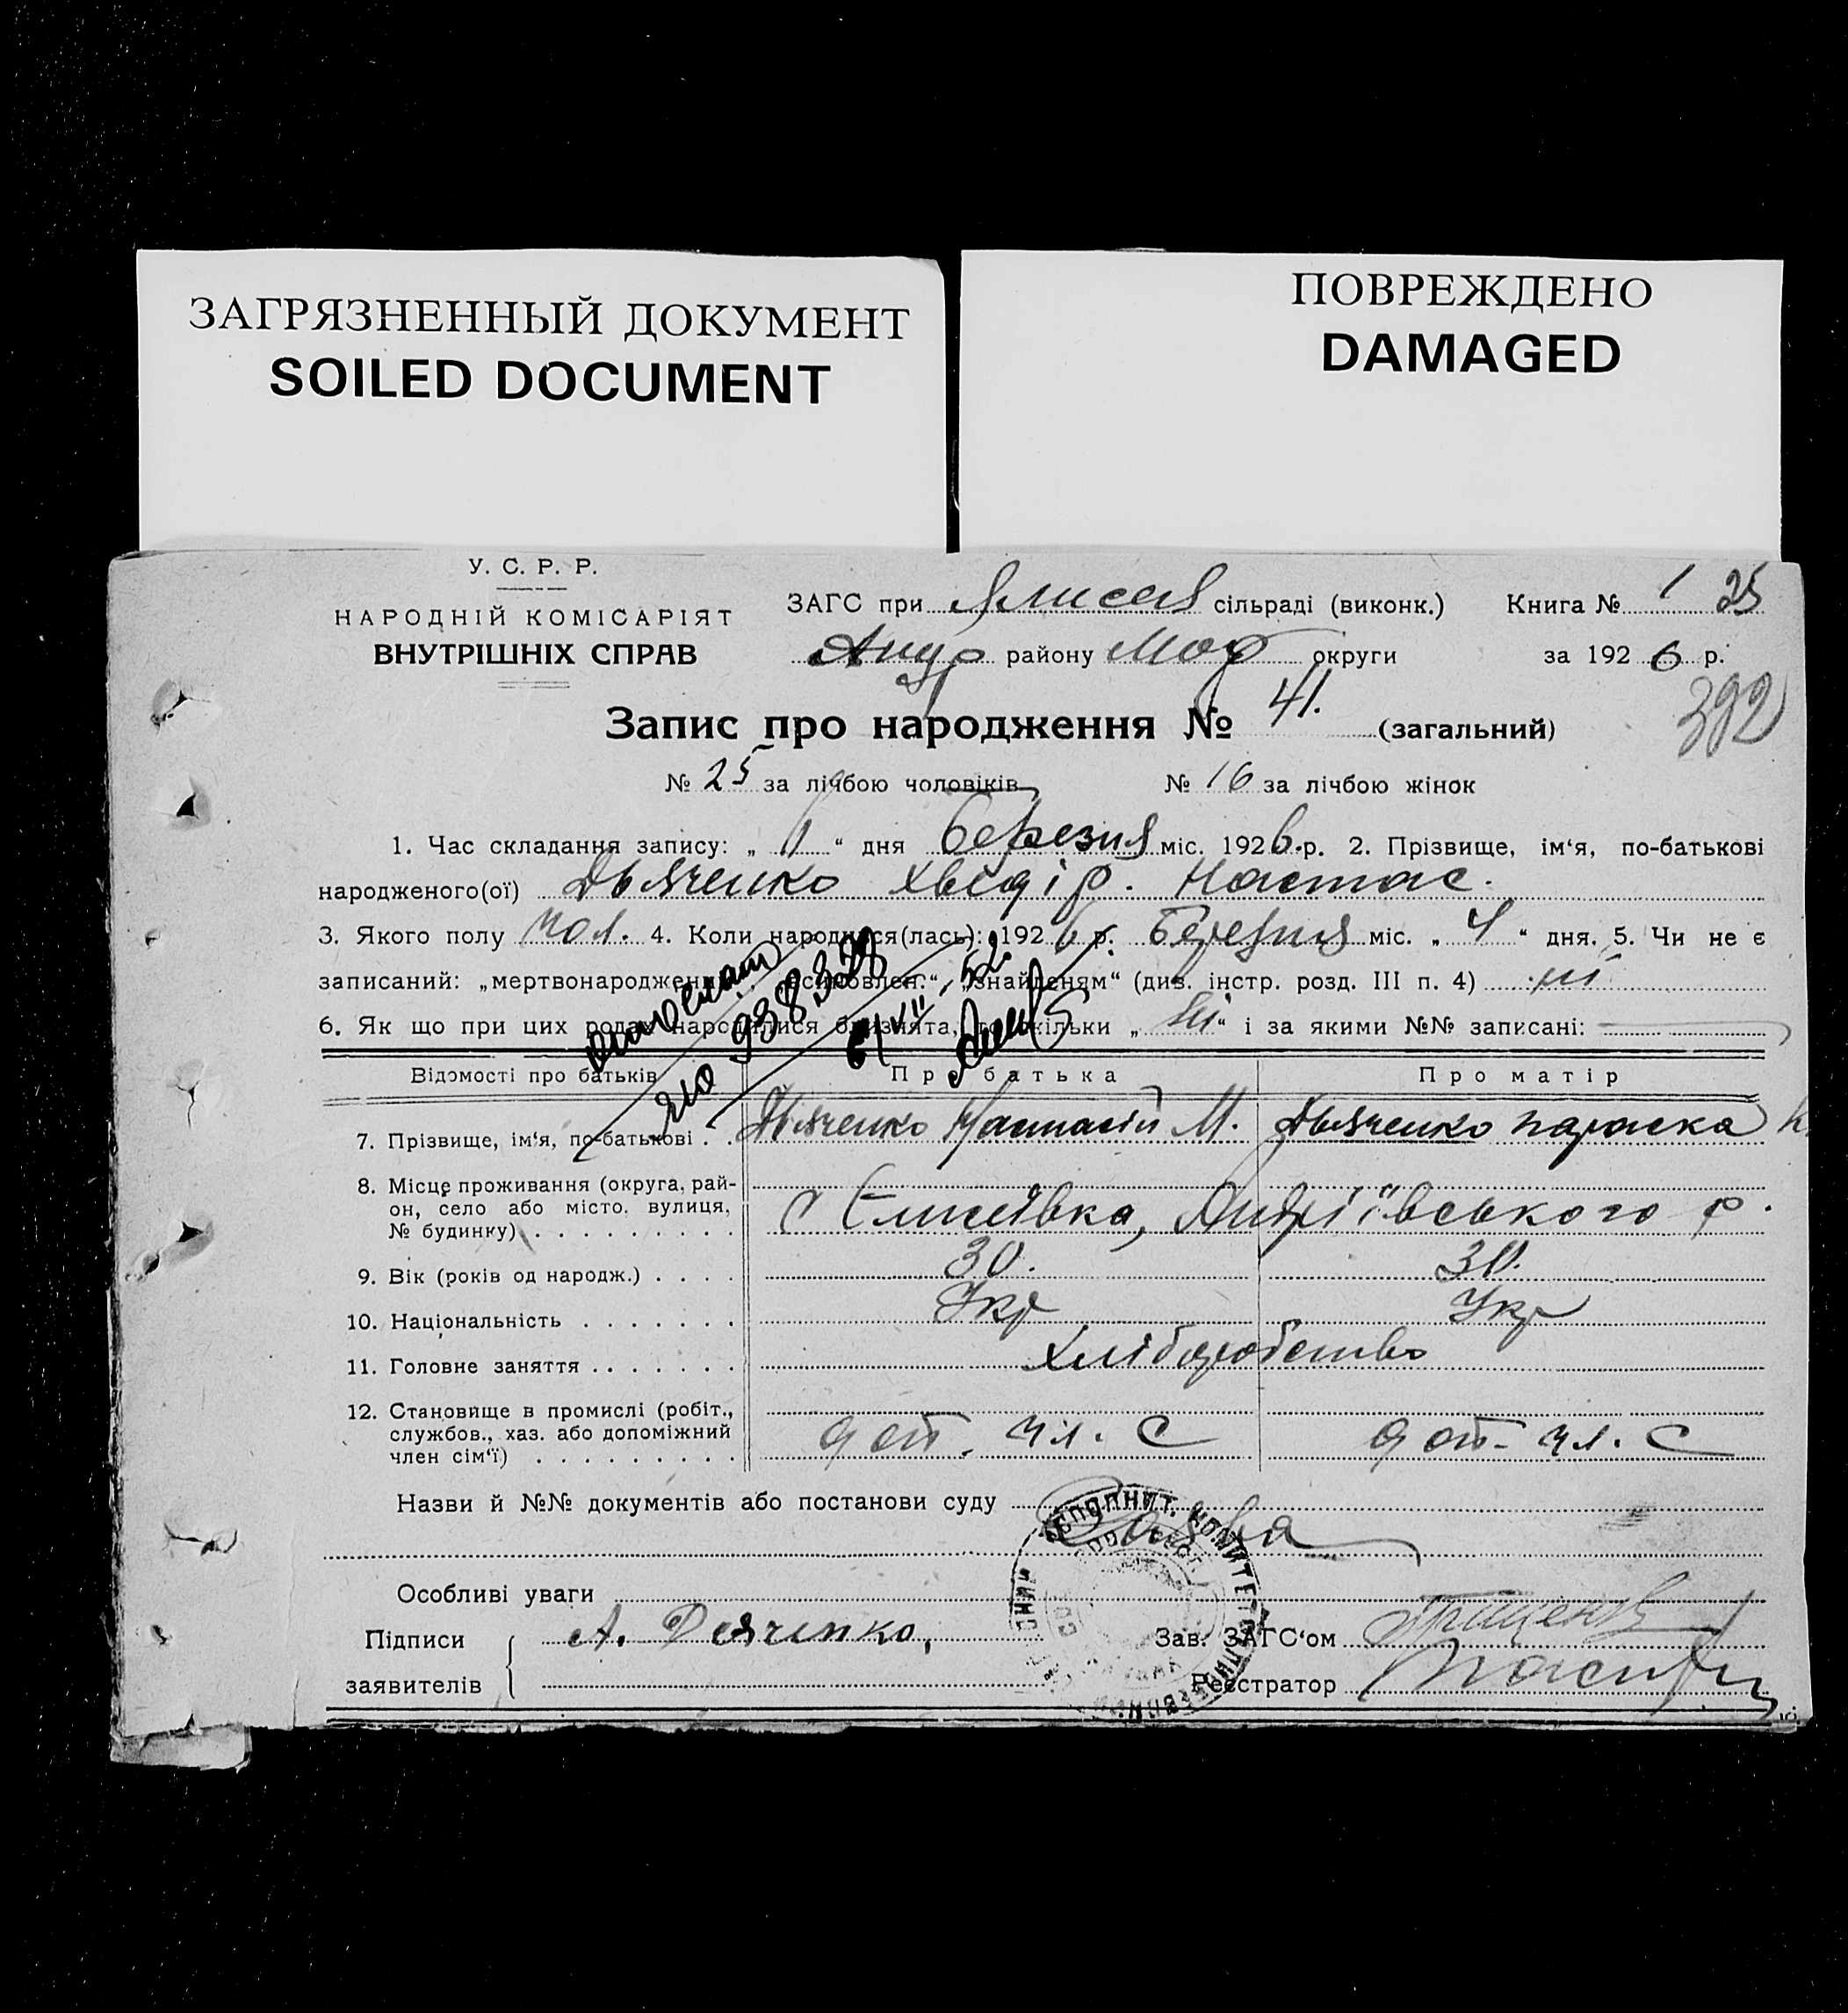 ЗАГРЯЗНЕННЫЙ ДОКУМЕНТ
SOILED DOCUMENT
ПОВРЕЖДЕНО
DAMAGED
У. С. Р. Р.
НАРОДНІЙ КОМІСАРІЯТ
ВНУТРІШНІХ СПРАВ
ЗАГС при сільраді (виконк.) Книга № 1 25
Андр району округи за 1926 р.
392
Запис про народження № 41. (загальний)
№ 25 за лічбою чоловіків № 16 за лічбою жінок
1. Час складання запису: „ “ дня березня міс. 1926 р. 2. Прізвище, ім‘я, по-батькові
народженого(ої) Дьяченко Хведір. Настас.
3. Якого полу чол. 4. Коли народився(лась): 1926 р. березня міс. „ 4 “ дня. 5. Чи не є
записаний: „мертвонароджений“, „знайденям“ (див. інстр. розд. III п. 4) ні
6. Як що при цих родах народилися близнята, то скільки „ ні “ і за якими №№ записані:
Відомості про батьків Про батька Про матір
7. Прізвище, ім‘я, по-батькові . . Дьяченко Настасій М. Дьяченко Параска
8. Місце проживання (округа, рай-
он, село або місто. вулиця,
№ будинку) . . . . . . . . . с Єлисеївка, Андріївського р.
9. Вік (років од народж.) . . . . 30. 30.
10. Національність . . . . . . . Укр Укр
11. Головне заняття . . . . . . . Хліборобство
12. Становище в промислі (робіт.,
службов., хаз. або допоміжний
член сім‘ї) . . . . . . . . . доп. чл. С доп. чл. С
Назви й №№ документів або постанови суду
Особливі уваги
Підписи А. Дяченко, Зав. ЗАГС‘ом
заявителів Реєстратор